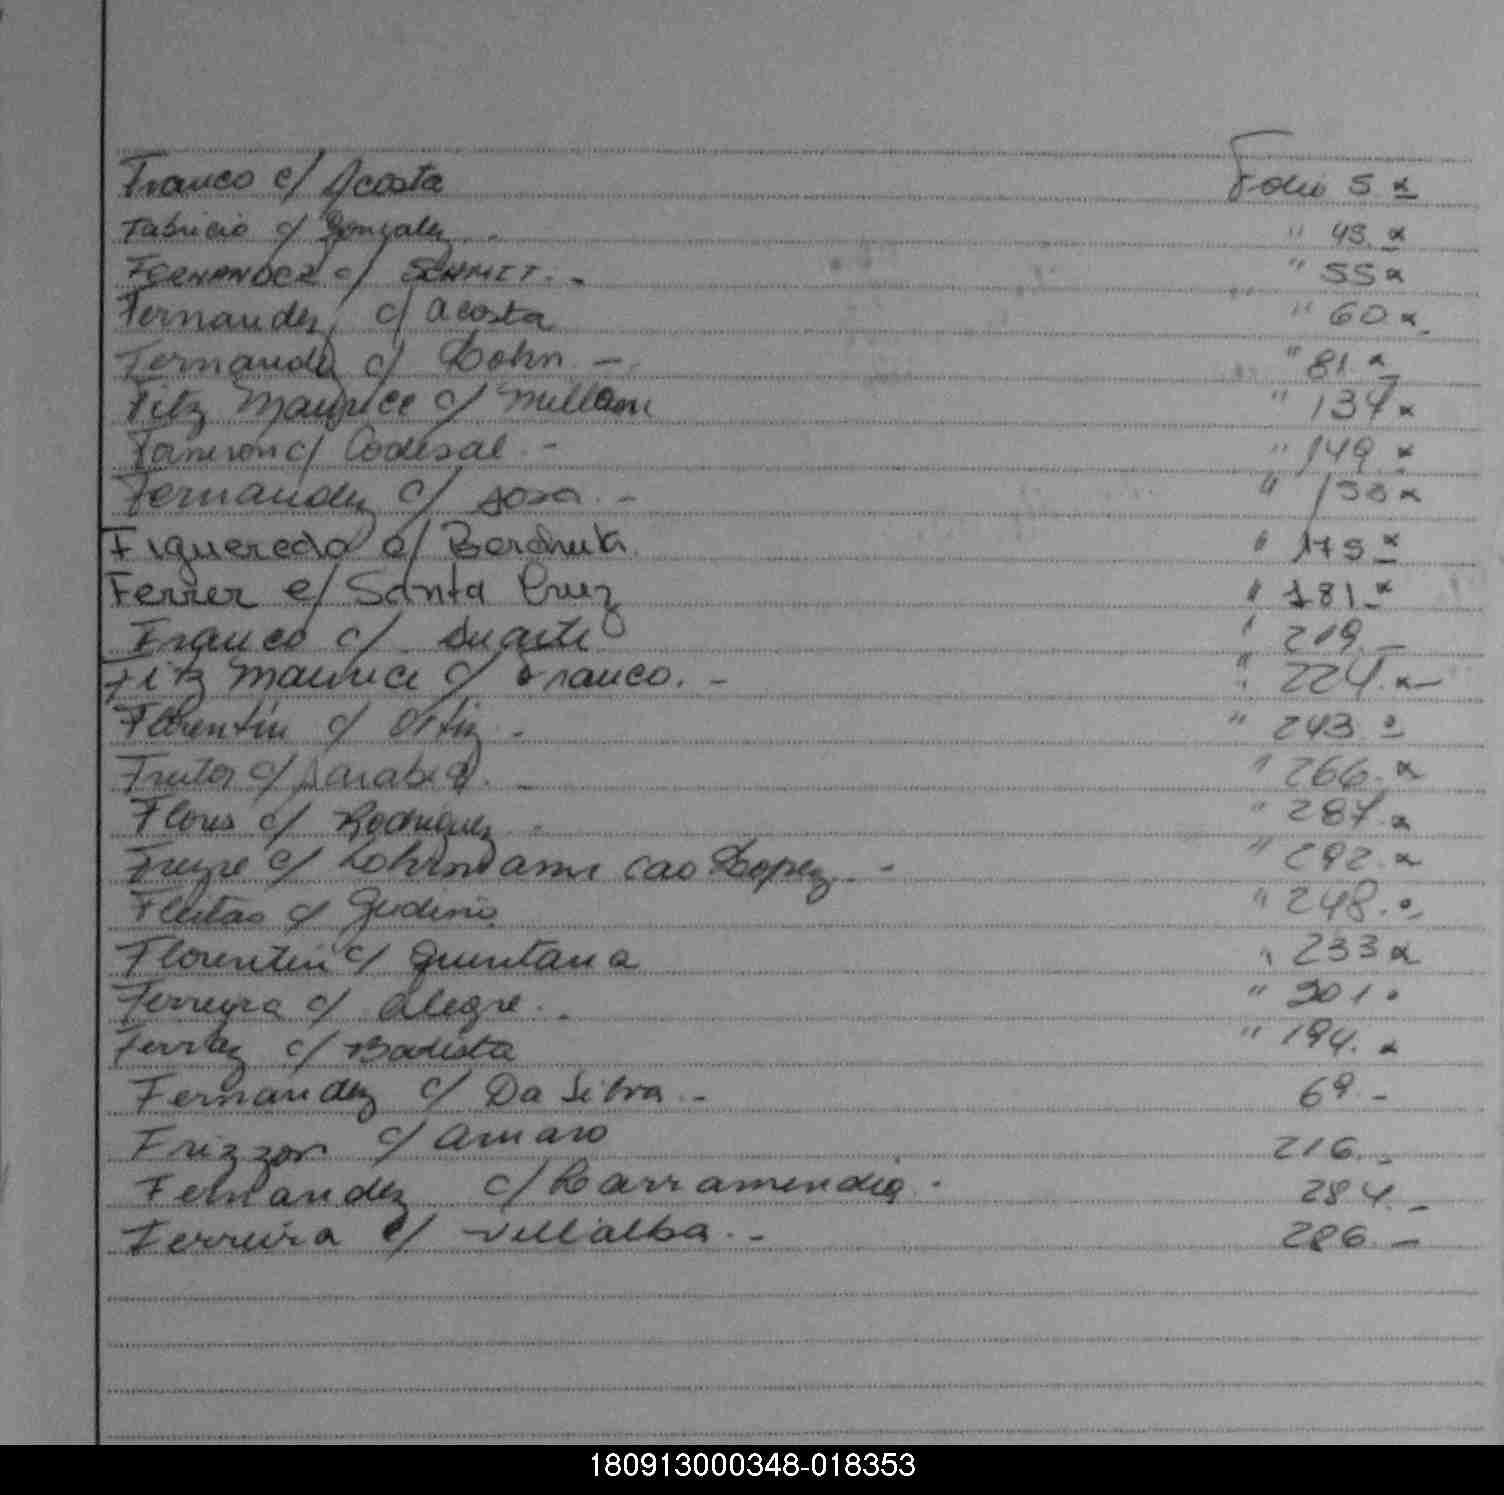 Franco c/ Acosta Folio 5. x
Fabricio c/ Gonzalez. " 43. x
FERNANDEZ c/ SCHMIT. - " 55 x
Fernandez c/ Acosta " 60. x
Fernandez c/ Dohn. - " 81. x
Fitz Maurice c/ Millan " 137 x
c/ Codesal. - " 149. x
Fernandez c/ Sosa. - " 158 x
Figueredo c/ " 175 x
Ferrer c/ Santa Cruz " 181. x
Franco c/ Duarte " 219. -
Fitz Maurice c/ Franco. - " 224. x -
Florentin c/ Ortiz. - " 243.
Frutos c/ Sarabia. - " 266. x
Flores c/ Rodriguez. " 287. x
Freyre c/ Lohrmann cao Lopez. - " 292. x
Fleitas c/ Gudiño " 248.
Florentin c/ Quintana " 233 x
Ferreyra c/ Alegre. - " 301.
Ferraz c/ Batista " 194. x
Fernandez c/ Da Silva. - 69. -
Frizzon c/ Amaro 216. -
Fernandez c/ Larramendia. 284. -
Ferreira c/ Villalba. - 286. -
180913000348-018353